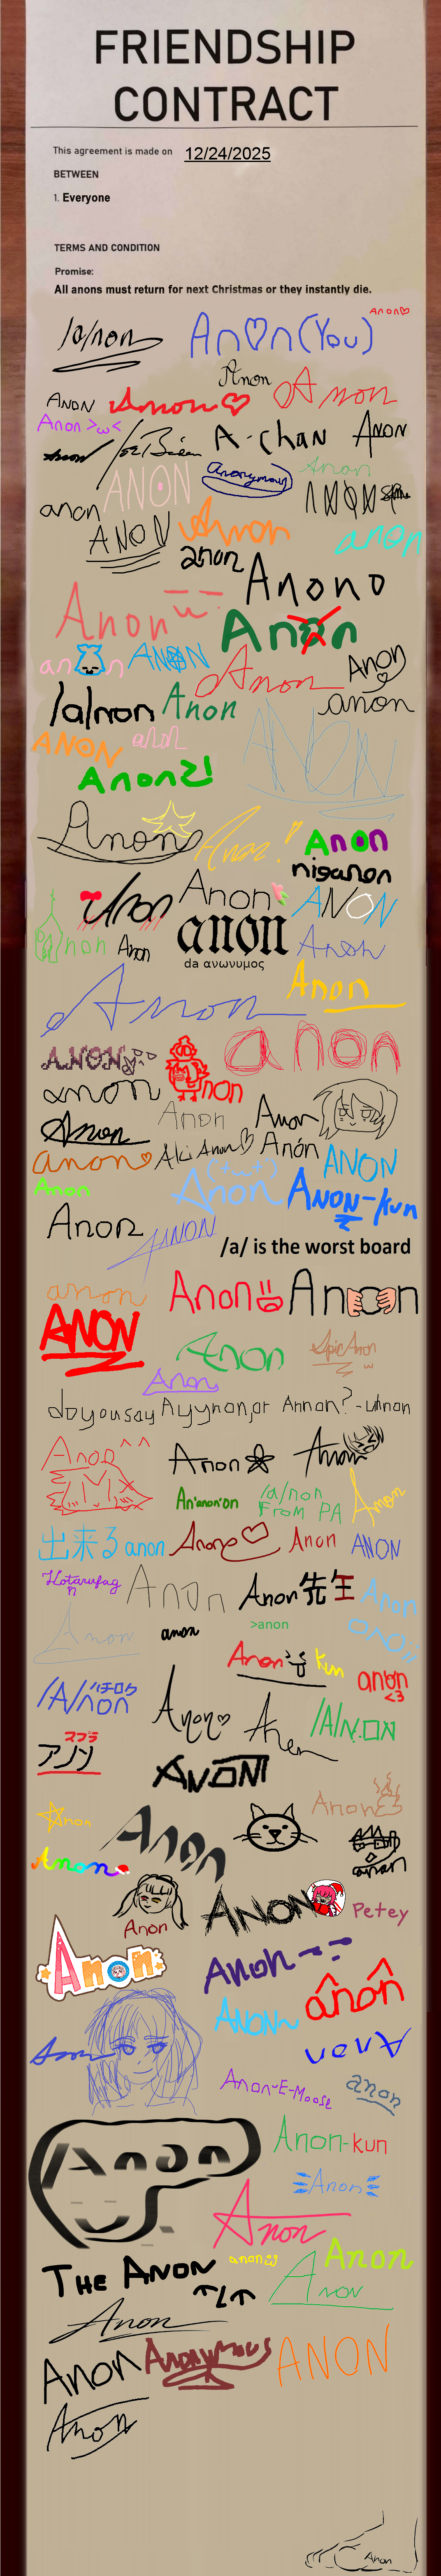 FRIENDSHIP
CONTRACT
This agreement is made on 12/24/2025
BETWEEN
1. Everyone
TERMS AND CONDITION
Promise:
All anons must return for next Christmas or they instantly die.
Anon♡
/a/non
An♡n(You)
Anon
Anon
Anon♡
Anon
Anon >ω<
Anon
Joe Biden
A-chan
Anon
ANON
Anonymous
Anon
anon
ANON
Anon
anon
anon
Anono
Anon
Anon
an n
ANON
Anon
Anon
/a/non
Anon
anon
ANON
anon
ANON
Anonձ!
Anon
Anon!
Anon
niganon
Anon
Anon
ANON
anon
anon
Anon
Anon
da ανωνυμος
Anon
Anon
ANON
anon
anon
non
Anon
Anon
Anon
anon♡
Aki Anon♡
Anón
ANON
Anon
Anon
ANON-kun
Anon
ANON
/a/ is the worst board
anon
Anon
Anon
ANON
Anon
EpicAnon
ω
Anon
do you say Ayynon, or Annon? - Unnan
Anon ^^
Anon
Anon
An'anon'on
/a/non
From PA
Anon
出来る anon
Anon♡
Anon
ANON
Hotarufag
n
Anon
Anon先生
Anon
Anon
anon
>anon
anon
Anon
kun
anon
<3
/A/non
ハチロク
Anon♡
Anon
/A/N.ON
マフラ
アノン
ANON
☆Anon
Anon
Anon
Anon
anon
Anon
ANON
Petey
Anon
Anon
ânôn
ANON~
Anon
Anon
Anon-E-Moose
anon
Anon
Anon-kun
Anon
Anon
THE ANON
anon
Anon
Anon
Anon
Anon
Anonymous
ANON
Anon
Anon